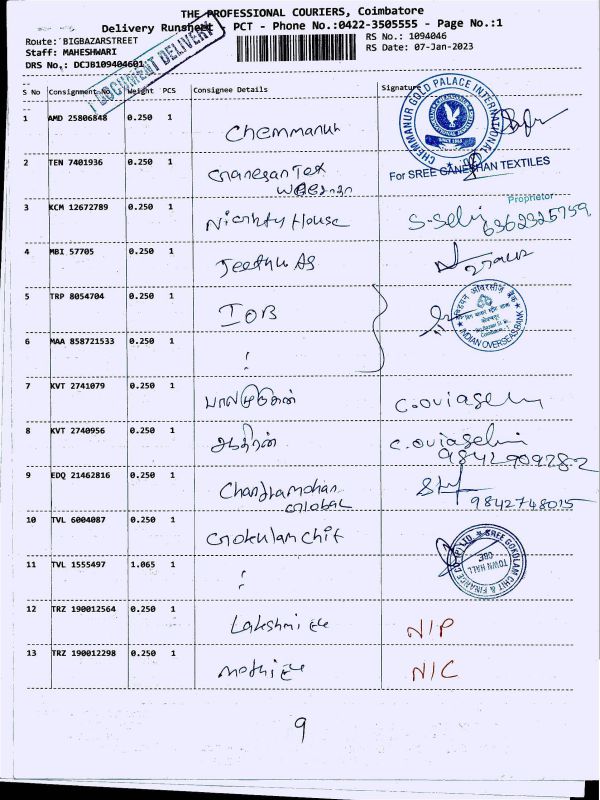 THE PROFESSIONAL COURIERS, Coimbatore
Delivery Runsheet - PCT - Phone No.:0422-3505555 - Page No.:1
Route: BIGBAZARSTREET
RS No.: 1094046
Staff: MAHESHWARI
RS Date: 07-Jan-2023
DRS No.: DCJB109404601
DOCUMENT DELIVERY
S No Consignment No Weight PCS Consignee Details Signature
CHEMMANUR GOLD PALACE INTERNATIONAL
1 AMD 25806848 0.250 1 Chemmanur
2 TEN 7401936 0.250 1 Ganesan Tex
For SREE GANESHAN TEXTILES
Proprietor
3 KCM 12672789 0.250 1 Nighty House S-Selvi
6362325759
4 MBI 57705 0.250 1 Jeethu AS
5 TRP 8054704 0.250 1 IOB
इंडियन ओवरसीज़ बैंक
INDIAN OVERSEAS BANK
6 MAA 858721533 0.250 1
7 KVT 2741079 0.250 1 பாலமுருகன் C.oviaselv
8 KVT 2740956 0.250 1 C.oviaselvi
9842909282
9 EDQ 21462816 0.250 1 Chandramohan
Global
9842748015
10 TVL 6004087 0.250 1 Gokulam chit
SREE GOKULAM CHIT & FINANCE CO (P) LTD.
TOWN HALL
CBE
11 TVL 1555497 1.065 1
12 TRZ 190012564 0.250 1 Lakshmi Ele N/P
13 TRZ 190012298 0.250 1 Mothi Ele N/C
9